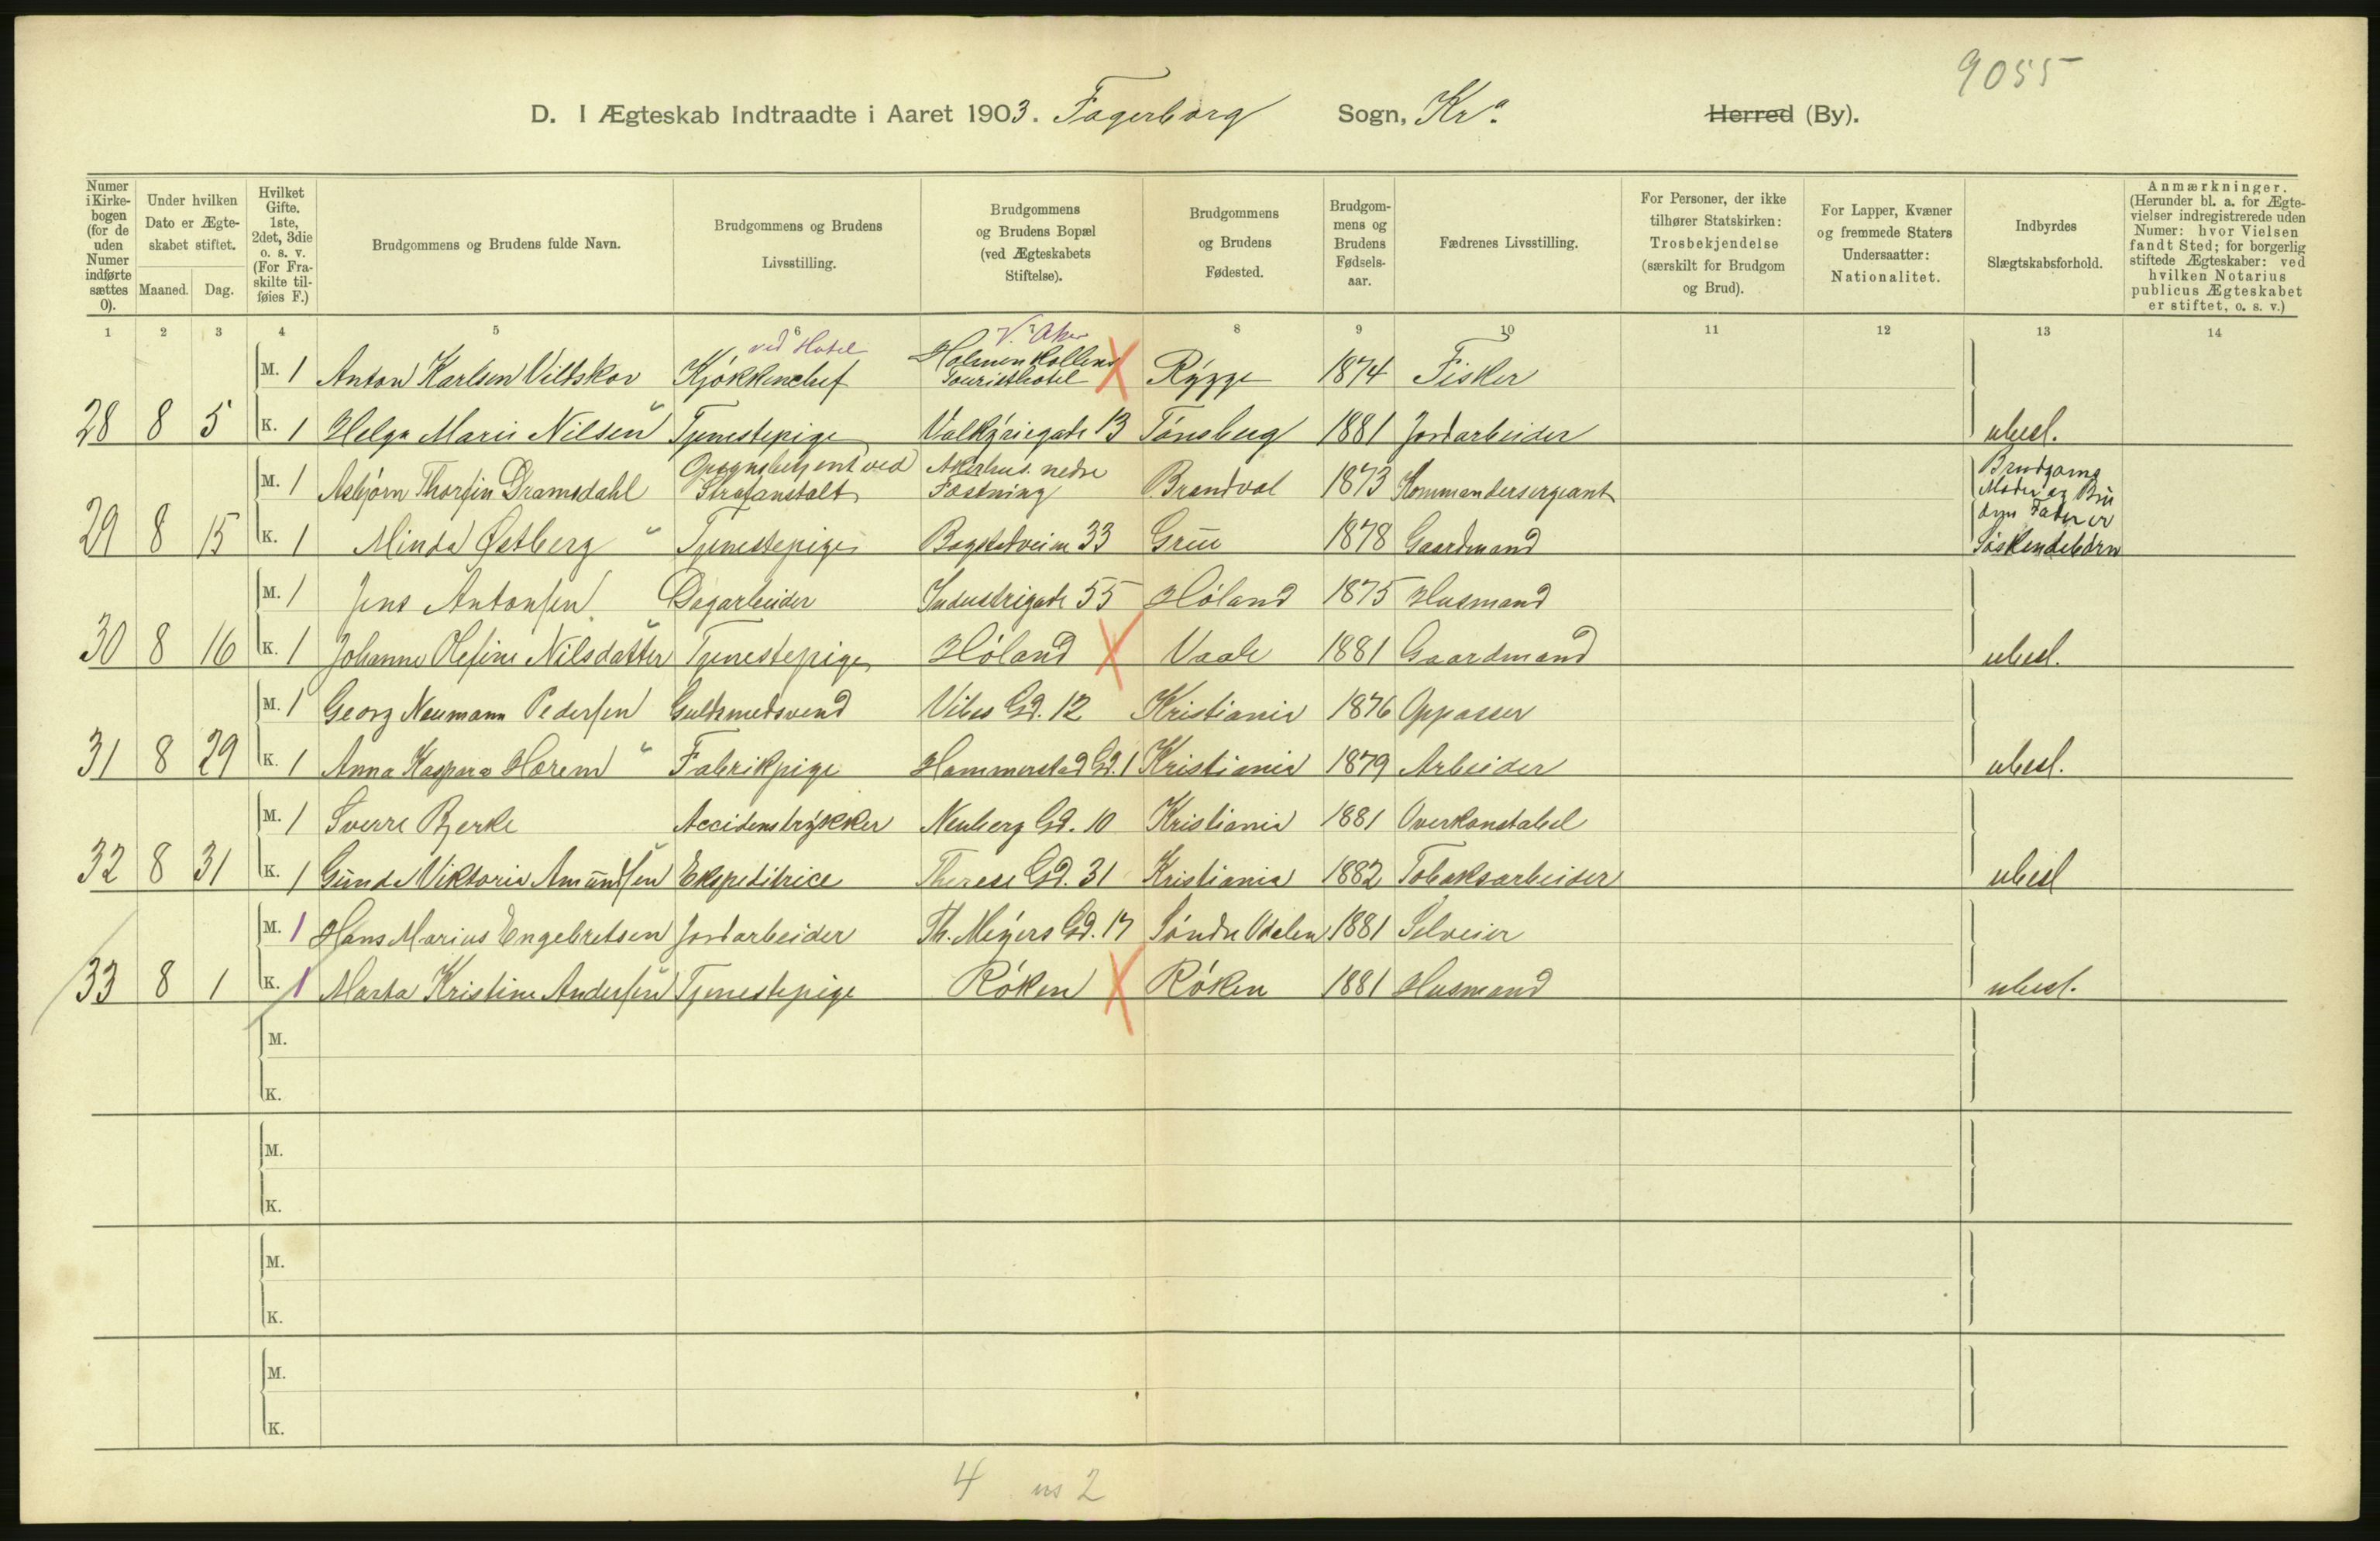 9055
D. I Ægteskab Indtraadte i Aaret 1903. Fagerborg Sogn, Kra. Herred (By).
Numer i Kirkebogen (for de uden Numer indførte sættes 0).
Under hvilken Dato er Ægteskabet stiftet.
Maaned. Dag.
Hvilket Gifte. 1ste, 2det, 3die o. s. v. (For Fraskilte tilføies F.)
Brudgommens og Brudens fulde Navn.
Brudgommens og Brudens Livsstilling.
Brudgommens og Brudens Bopæl (ved Ægteskabets Stiftelse).
Brudgommens og Brudens Fødested.
Brudgommens og Brudens Fødselsaar.
Fædrenes Livsstilling.
For Personer, der ikke tilhører Statskirken: Trosbekjendelse (særskilt for Brudgom og Brud).
For Lapper, Kvæner og fremmede Staters Undersaatter: Nationalitet.
Indbyrdes Slægtskabsforhold.
Anmærkninger. (Herunder bl. a. for Ægtevielser indregistrerede uden Numer: hvor Vielsen fandt Sted; for borgerlig stiftede Ægteskaber: ved hvilken Notarius publicus Ægteskabet er stiftet, o. s. v.)
1 2 3 4 5 6 7 8 9 10 11 12 13 14
ved Hotel V. Aker
M. 1 Anton Karlsen Viltskov Kjøkkenchef Holmenkollens Touristhotel X Rygge 1874 Fisker
28 8 5 K. 1 Helga Marie Nilsen Tjenestepige Valkyriegade 13 Tønsberg 1881 Jordarbeider ubesl.
M. 1 Asbjørn Thorfin Dramsdahl Opsynsbetjent ved Strafanstalt Akerhus nedre Fæstning Brandval 1873 Kommandersergeant Brudgoms Moder og Brudens Fader er
29 8 15 K. 1 Minda Østberg Tjenestepige Bogstadveien 33 Grue 1878 Gaardmand Søskendebørn
M. 1 Jens Antonsen Dagarbeider Industrigade 55 Høland 1875 Husmand
30 8 16 K. 1 Johanne Olefine Nilsdatter Tjenestepige Høland X Vaale 1881 Gaardmand ubesl.
M. 1 Georg Neumann Pedersen Guldsmedsvend Vibes Gd. 12 Kristiania 1876 Oppasser
31 8 29 K. 1 Anna Kaspara Horem Fabrikpige Hammerstad Gd. 1 Kristiania 1879 Arbeider ubesl.
M. 1 Sverre Bjerke Accidenstrykker Neuberg Gd. 10 Kristiania 1881 Overkonstabel
32 8 31 K. 1 Gunda Viktoria Amundsen Ekspeditrice Therese Gd. 31 Kristiania 1882 Tobaksarbeider ubesl
M. 1 Hans Marius Engebretsen Jordarbeider Th. Meyers Gd. 17 Søndre Odalen 1881 Selveier
33 8 1 K. 1 Marta Kristine Andersen Tjenestepige Røken X Røken 1881 Husmand ubesl.
M.
K.
M.
K.
M.
K.
M.
K.
4 us 2